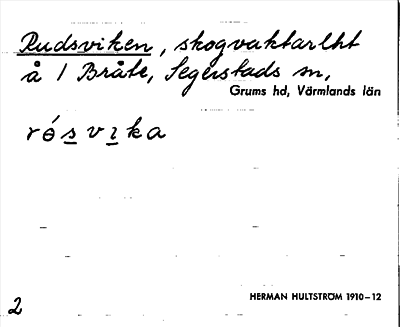 Rudsviken, skogvaktarlht
å 1 Bråte, Segerstads sn,
Grums hd, Värmlands län
rǿsvika
HERMAN HULTSTRÖM 1910–12
2